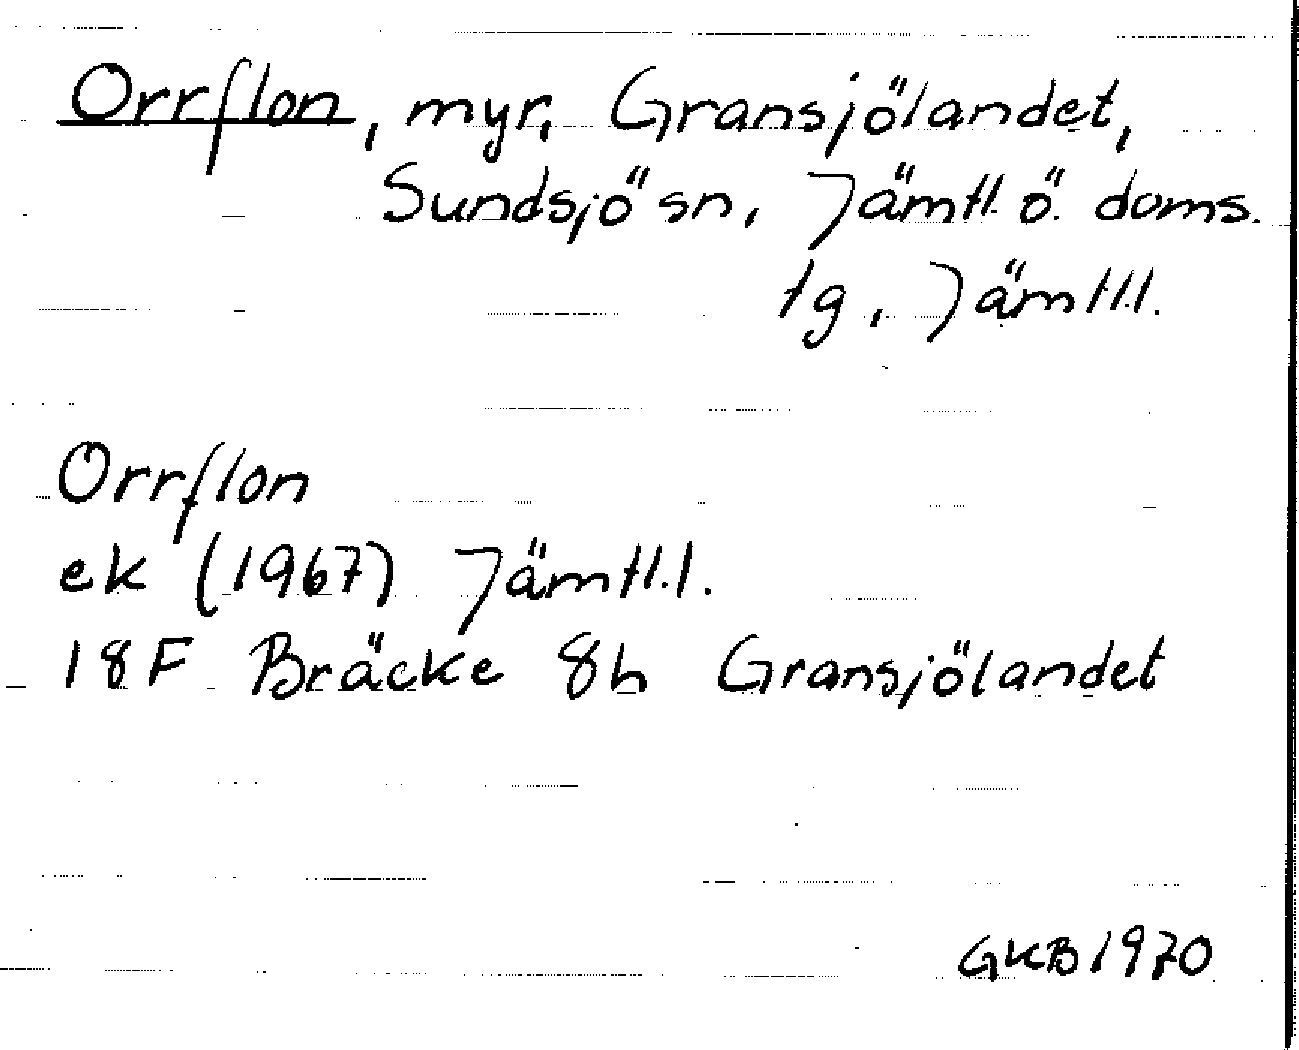 Orrflon, myr, Gransjölandet,
Sundsjö sn, Jämtl. ö. doms.
tg, Jämtl.l.
Orrflon
ek (1967) Jämtl.l.
18F Bräcke 8h Gransjölandet
GKB 1970